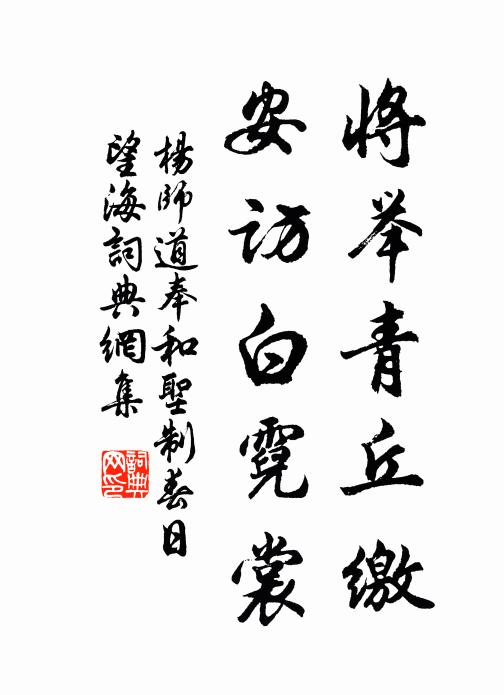 将举青丘缴
安访白霓裳
楊師道奉和聖制春日
望海詞典網集
詞典
网印